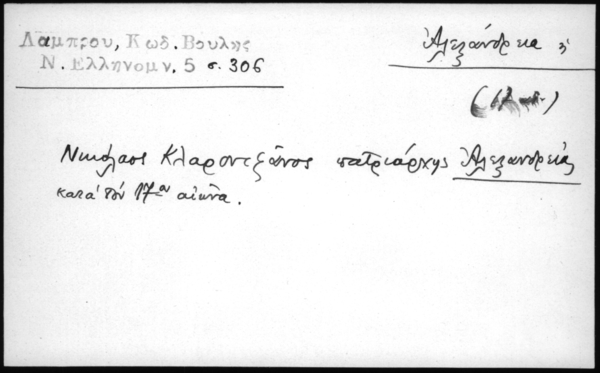 Λάμπρου, Κωδ. Βουλης
Ν. Ελληνομν. 5 σ. 306
Ἀλεξάνδρεια
Νικόλαος Κλαροντζᾶνος πατριάρχης Ἀλεξανδρείας
κατὰ τὸν 17ον αἰῶνα.